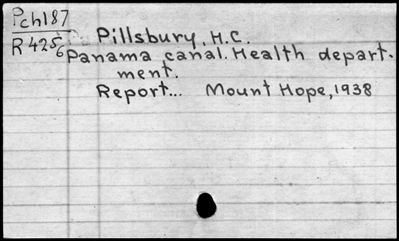 Pch187
R4256 Pillsbury, H.C.
Panama canal. Health depart-
ment.
Report... Mount Hope, 1938